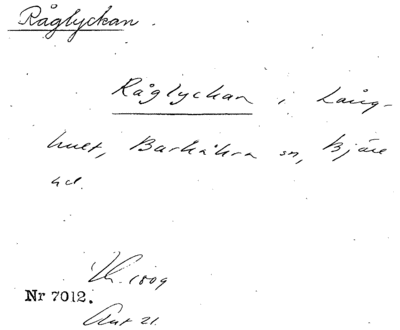 Råglyckan.
Råglyckan i Lång-
hult, Barkåkra sn, Bjäre
hd.
1809
Nr 7012.
Akt 21.